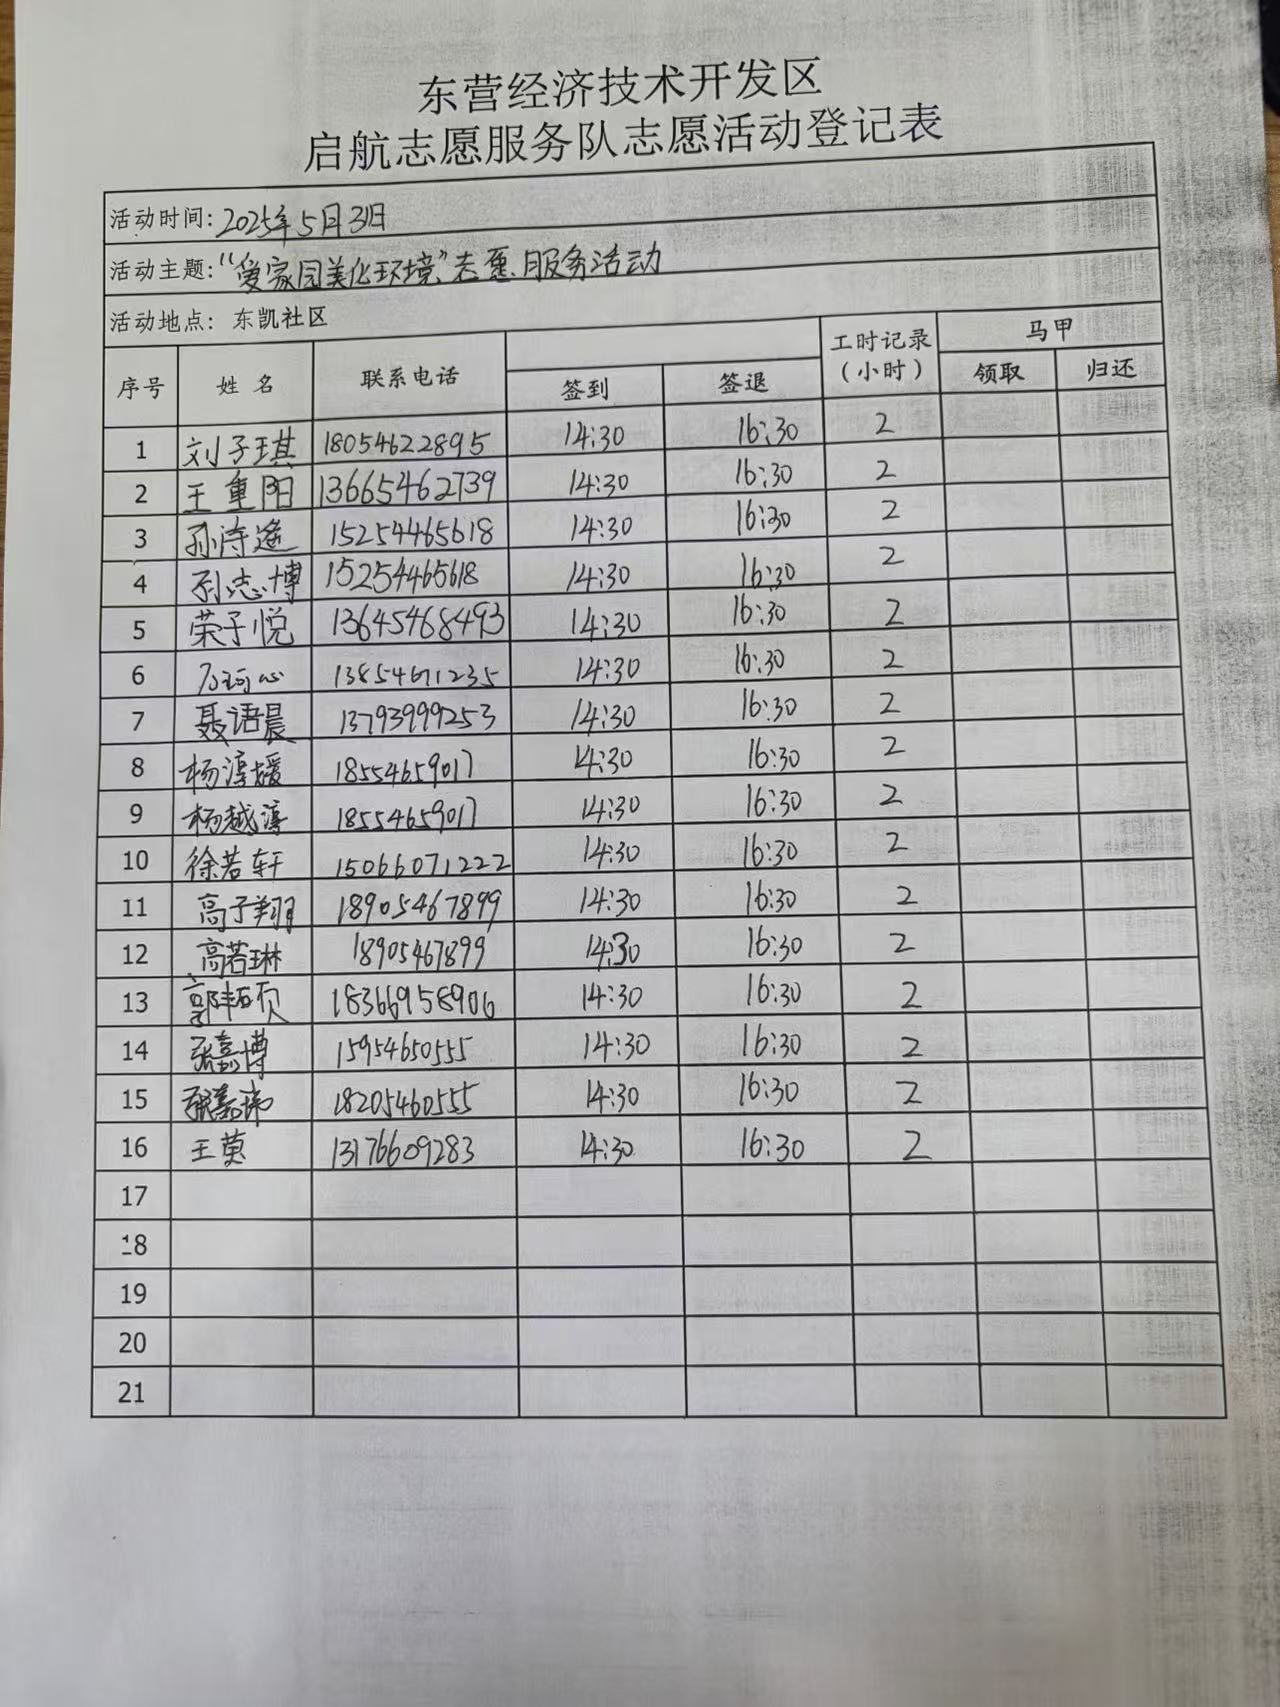 东营经济技术开发区
启航志愿服务队志愿活动登记表
活动时间: 2025年5月31日
活动主题: "爱家园美化环境"志愿服务活动
活动地点: 东凯社区
序号 姓名 联系电话 签到 签退 工时记录(小时) 马甲 领取 归还
1 刘子琪 18054622895 14:30 16:30 2
2 王重阳 13665462739 14:30 16:30 2
3 孙诗遥 15254465618 14:30 16:30 2
4 孙志博 15254465618 14:30 16:30 2
5 荣子悦 13645468493 14:30 16:30 2
6 珂心 13854671235 14:30 16:30 2
7 聂语晨 13793999253 14:30 16:30 2
8 杨淳媛 18554659017 14:30 16:30 2
9 杨越淳 18554659017 14:30 16:30 2
10 徐若轩 15066071222 14:30 16:30 2
11 高子翔 18905467899 14:30 16:30 2
12 高若琳 18905467899 14:30 16:30 2
13 郭 硕 18366958906 14:30 16:30 2
14 张嘉博 15954650555 14:30 16:30 2
15 张嘉 18205460555 14:30 16:30 2
16 王 13176609283 14:30 16:30 2
17
18
19
20
21